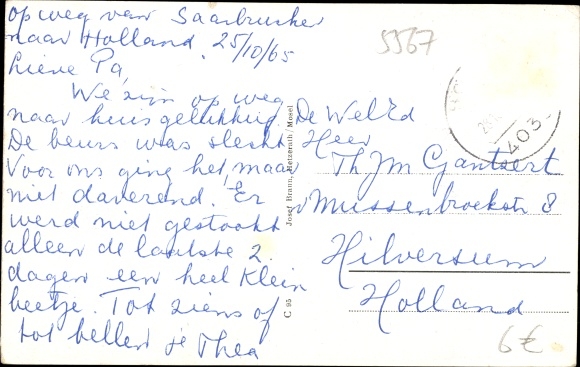 op weg van Saarbrucken
naar Holland. 25/10/65
Lieve Pa,
We zijn op weg
naar huis gelukkig.
De beurs was slecht
Voor ons ging het maar
niet daverend. Er
werd niet gestookt
alleen de laatste 2
dagen een heel klein
beetje. Tot ziens of
tot bellen je Thea
5567
De WelEd
Heer
Th. Jm Gantsert
v Mussenbroekstr 8
Hilversum
Holland
403
Josef Braun, Hetzerath/Mosel
C 95
6€